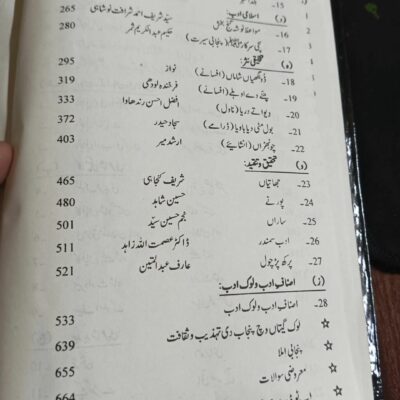 (د) اسلامی ادب:
16۔ مواعظ نوشہ گنج بخش سید شریف احمد شرافت نوشاہی 265
17۔ سچی سرکار ﷺ (پنجابی سیرت) حکیم عبدالکریم ثمر 280
(ہ) تخلیقی نثر:
18۔ ڈونگھیاں شاماں (افسانے) نواز 295
19۔ ہنے دے اوہلے (افسانے) فرخندہ لودھی 319
20۔ دیوا تے دریا (ناول) افضل احسن رندھاوا 333
21۔ بول مٹی دیا باویا (ڈرامے) سجاد حیدر 372
22۔ (انشایئے) ارشد میر 403
(و) تحقیق و تنقید:
23۔ جھاتیاں شریف کنجاہی 465
24۔ پورنے حسین شاہد 480
25۔ ساراں نجم حسین سیّد 501
26۔ ادب سمندر ڈاکٹر عصمت اللہ زاہد 511
27۔ پرکھ پڑچول عارف عبدالمتین 521
(ز) اصناف ادب و لوک ادب:
28۔ اصناف ادب و لوک ادب 533
☆ لوک گیتاں وچ پنجاب دی تہذیب و ثقافت 639
☆ پنجابی املا 655
☆ معروضی سوالات 664